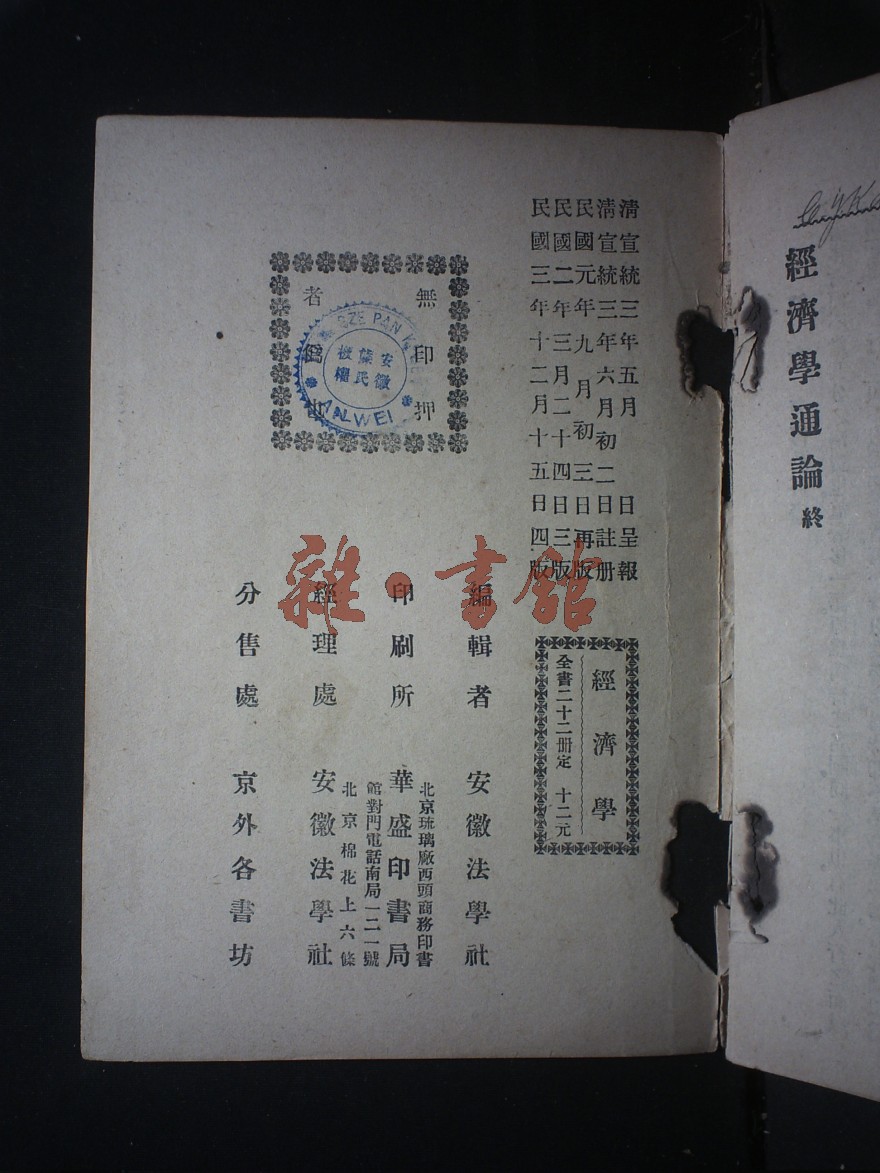 經濟學通論終
清宣統三年五月 日呈報
清宣統三年六月初二日註册
民國元年九月初三日再版
民國二年三月二十四日三版
民國三年十二月十五日四版
經濟學
全書二十二册定 十二元
無印押
者 也
安徽
氏
SZE PAN
ANWEI
編輯者 安徽法學社
北京琉璃廠西頭商務印書
印刷所 華盛印書局
館對門電話南局一二一號
北京棉花上六條
經理處 安徽法學社
分售處 京外各書坊
雜·書館